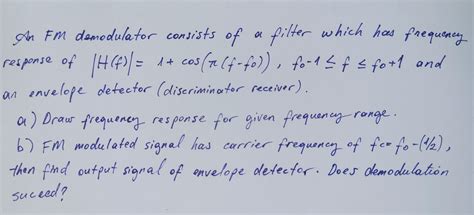 An FM demodulator consists of a filter which has frequency
response of |H(f)| = 1 + cos(π(f-f0)), f0-1 ≤ f ≤ f0+1 and
an envelope detector (discriminator receiver).
a) Draw frequency response for given frequency range.
b) FM modulated signal has carrier frequency of fc = f0-(1/2),
then find output signal of envelope detector. Does demodulation
suceed?